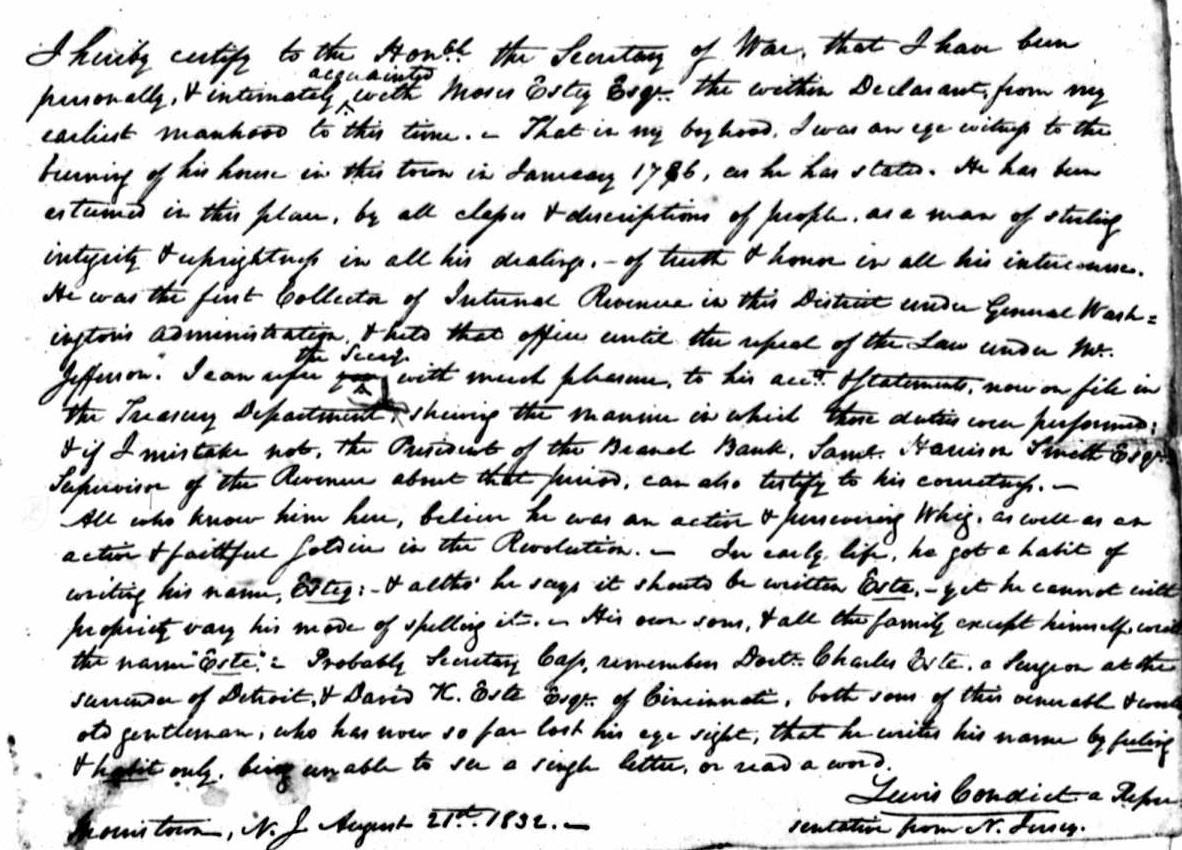 I hereby certify to the Honble. the Secretary of War, that I have been
personally, & intimately acquainted with Moses Estey Esqr. the within Declarant, from my
earliest manhood to this time. - That in my boyhood, I was an eye witness to the
burning of his house in this town in January 1786, as he has stated. He has been
esteemed in this place, by all classes & descriptions of people, as a man of sterling
integrity & uprightness in all his dealings, - of truth & honor in all his intercourse.
He was the first Collector of Internal Revenue in this District under General Wash=
ington's administration, & held that office until the repeal of the Law under Mr.
Jefferson. I can refer the Secry. with much pleasure, to his acct. & Statements, now on file in
the Treasury Department, shewing the manner in which those duties were performed;
& if I mistake not, the President of the Branch Bank, Saml. Harrison Smith Esqr.
Supervisor of the Revenue about that period, can also testify to his correctness. -
All who know him here, believe he was an active & persevering Whig, as well as an
active & faithful Soldier in the Revolution. - In early life, he got a habit of
writing his name, Estey: - & altho' he says it should be written Este, - yet he cannot with
propriety vary his mode of spelling it. - His own sons, & all the family except himself, write
the name "Este". - Probably Secretary Cass, remembers Doctr. Charles Este, a Surgeon at the
surrender of Detroit, & David K. Este Esqr. of Cincinnati, both sons of this venerable &
old gentleman, who has now so far lost his eye sight, that he writes his name by feeling
& habit only, being unable to see a single letter, or read a word.
Lewis Condict a Repre
sentative from N. Jersey.
Morristown, N. J August 21st. 1832. -